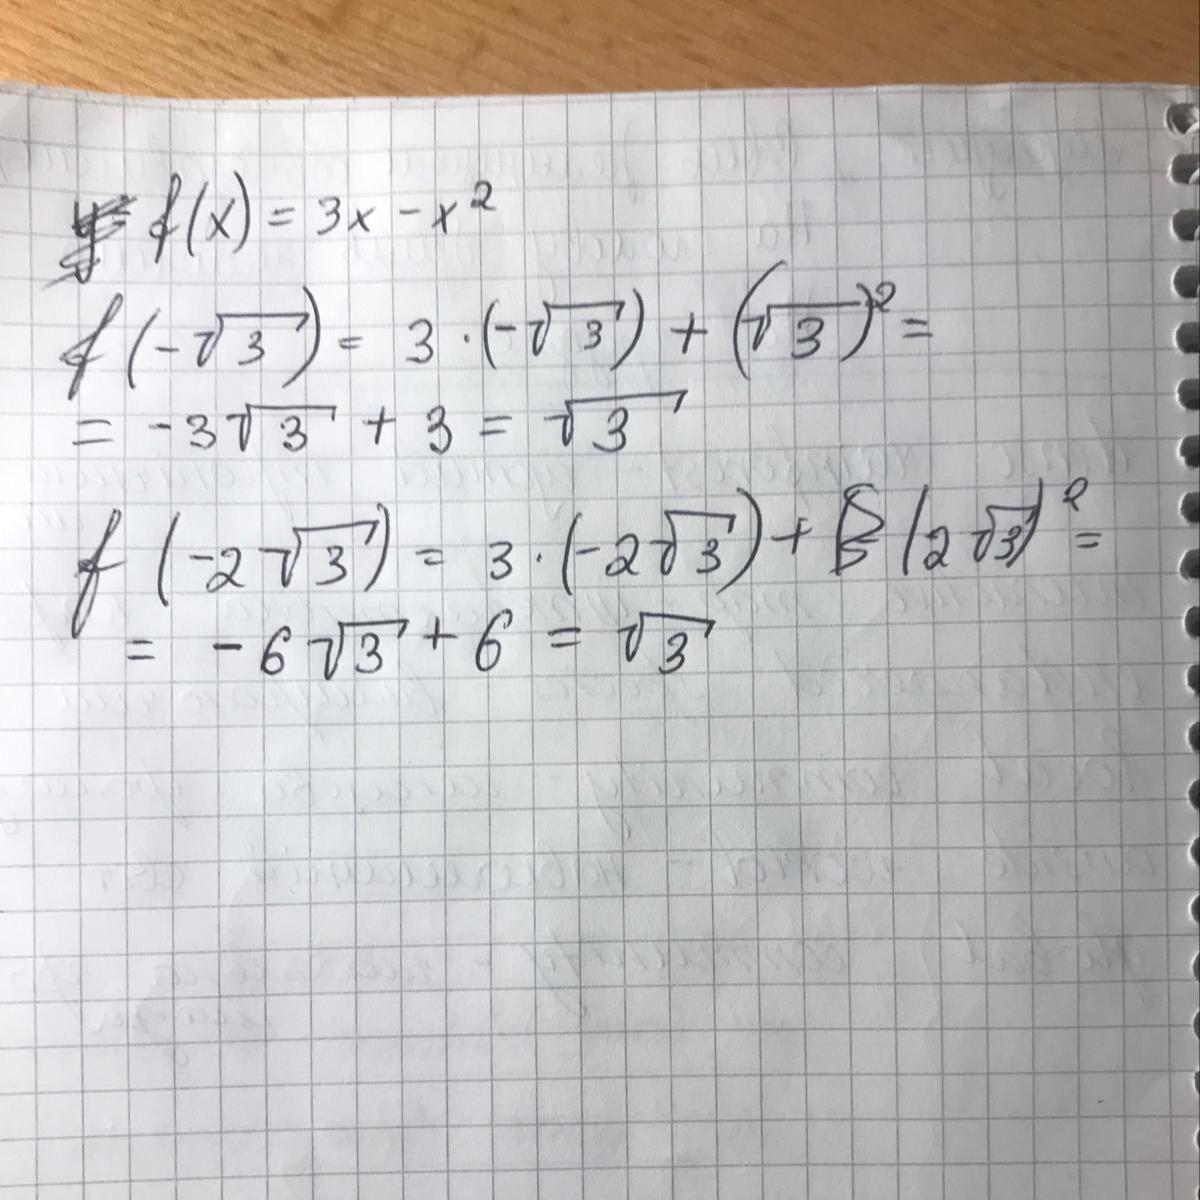 f(x) = 3x - x²
f(-√3) = 3·(-√3) + (√3)² =
= -3√3 + 3 = √3
f(-2√3) = 3·(-2√3) + (2√3)² =
= -6√3 + 6 = √3